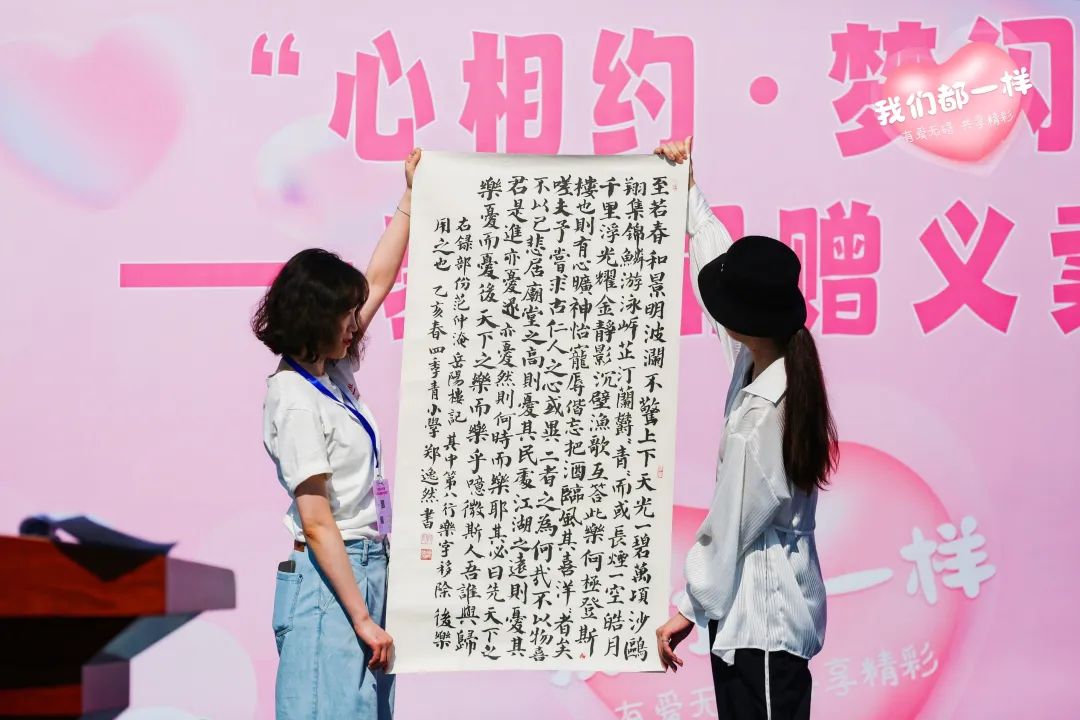 “心相约·梦
我们都一样
有爱无碍 共享精彩
赠义
至若春和景明波瀾不驚上下天光一碧萬頃沙鷗
翔集錦鱗游泳岸芷汀蘭欝〻青〻而或長煙一空皓月
千里浮光耀金靜影沉璧漁歌互答此樂何極登斯
樓也則有心曠神怡寵辱偕忘把酒臨風其喜洋〻者矣
嗟夫予嘗求古仁人之心或異二者之為何哉不以物喜
不以己悲居廟堂之高則憂其民處江湖之遠則憂其
君是進亦憂退亦憂然則何時而樂耶其必曰先天下之
樂憂而憂後天下之樂而樂乎噫微斯人吾誰與歸
右録部份范仲淹岳陽樓記 其中第八行樂字移除後樂
用之也 乙亥春四季青小學郑逸然書
一样
有爱无 共享精彩